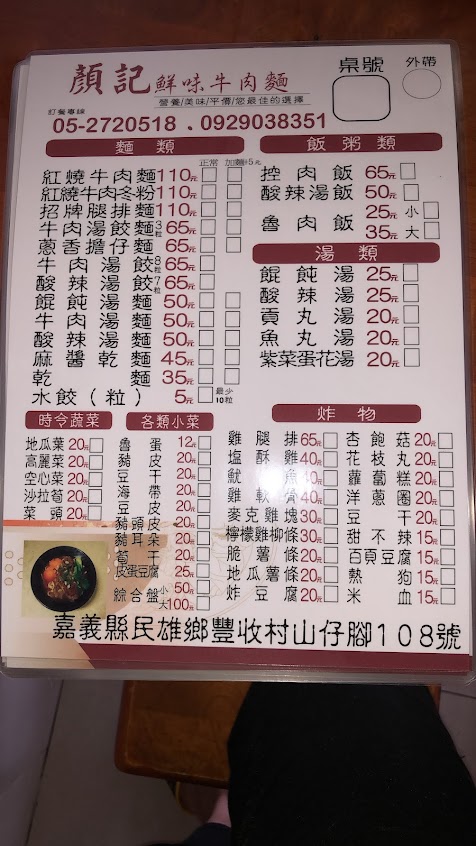 顏記鮮味牛肉麵
營養/美味/平價/您最佳的選擇
桌號
外帶
訂餐專線
05-2720518 . 0929038351
麵類
正常 加麵+5元
紅燒牛肉麵110元
紅燒牛肉冬粉110元
招牌腿排麵110元
牛肉湯餃麵3粒65元
蔥香擔仔麵65元
牛肉湯餃8粒65元
酸辣湯餃7粒65元
餛飩湯麵50元
牛肉湯麵50元
酸辣湯麵50元
麻醬乾麵45元
乾麵35元
水餃(粒)5元 最少10粒
飯粥類
控肉飯65元
酸辣湯飯50元
魯肉飯25元小
35元大
湯類
餛飩湯25元
酸辣湯25元
貢丸湯20元
魚丸湯20元
紫菜蛋花湯20元
時令蔬菜
地瓜菜20元
高麗菜20元
空心菜20元
沙拉筍20元
菜頭20元
各類小菜
魯蛋12元
豬皮20元
豆干20元
海帶20元
豆皮20元
豬頭皮20元
豬耳朵20元
筍干20元
皮蛋豆腐25元
綜合盤小50元
大100元
炸物
雞腿排65元
塩酥雞40元
魷魚40元
雞軟骨40元
麥克雞塊30元
檸檬雞柳條30元
脆薯條20元
地瓜薯條20元
炸豆腐20元
杏鮑菇20元
花枝丸20元
蘿蔔糕20元
洋蔥圈20元
豆干20元
甜不辣15元
百頁豆腐15元
熱狗15元
米血15元
嘉義縣民雄鄉豐收村山仔腳108號